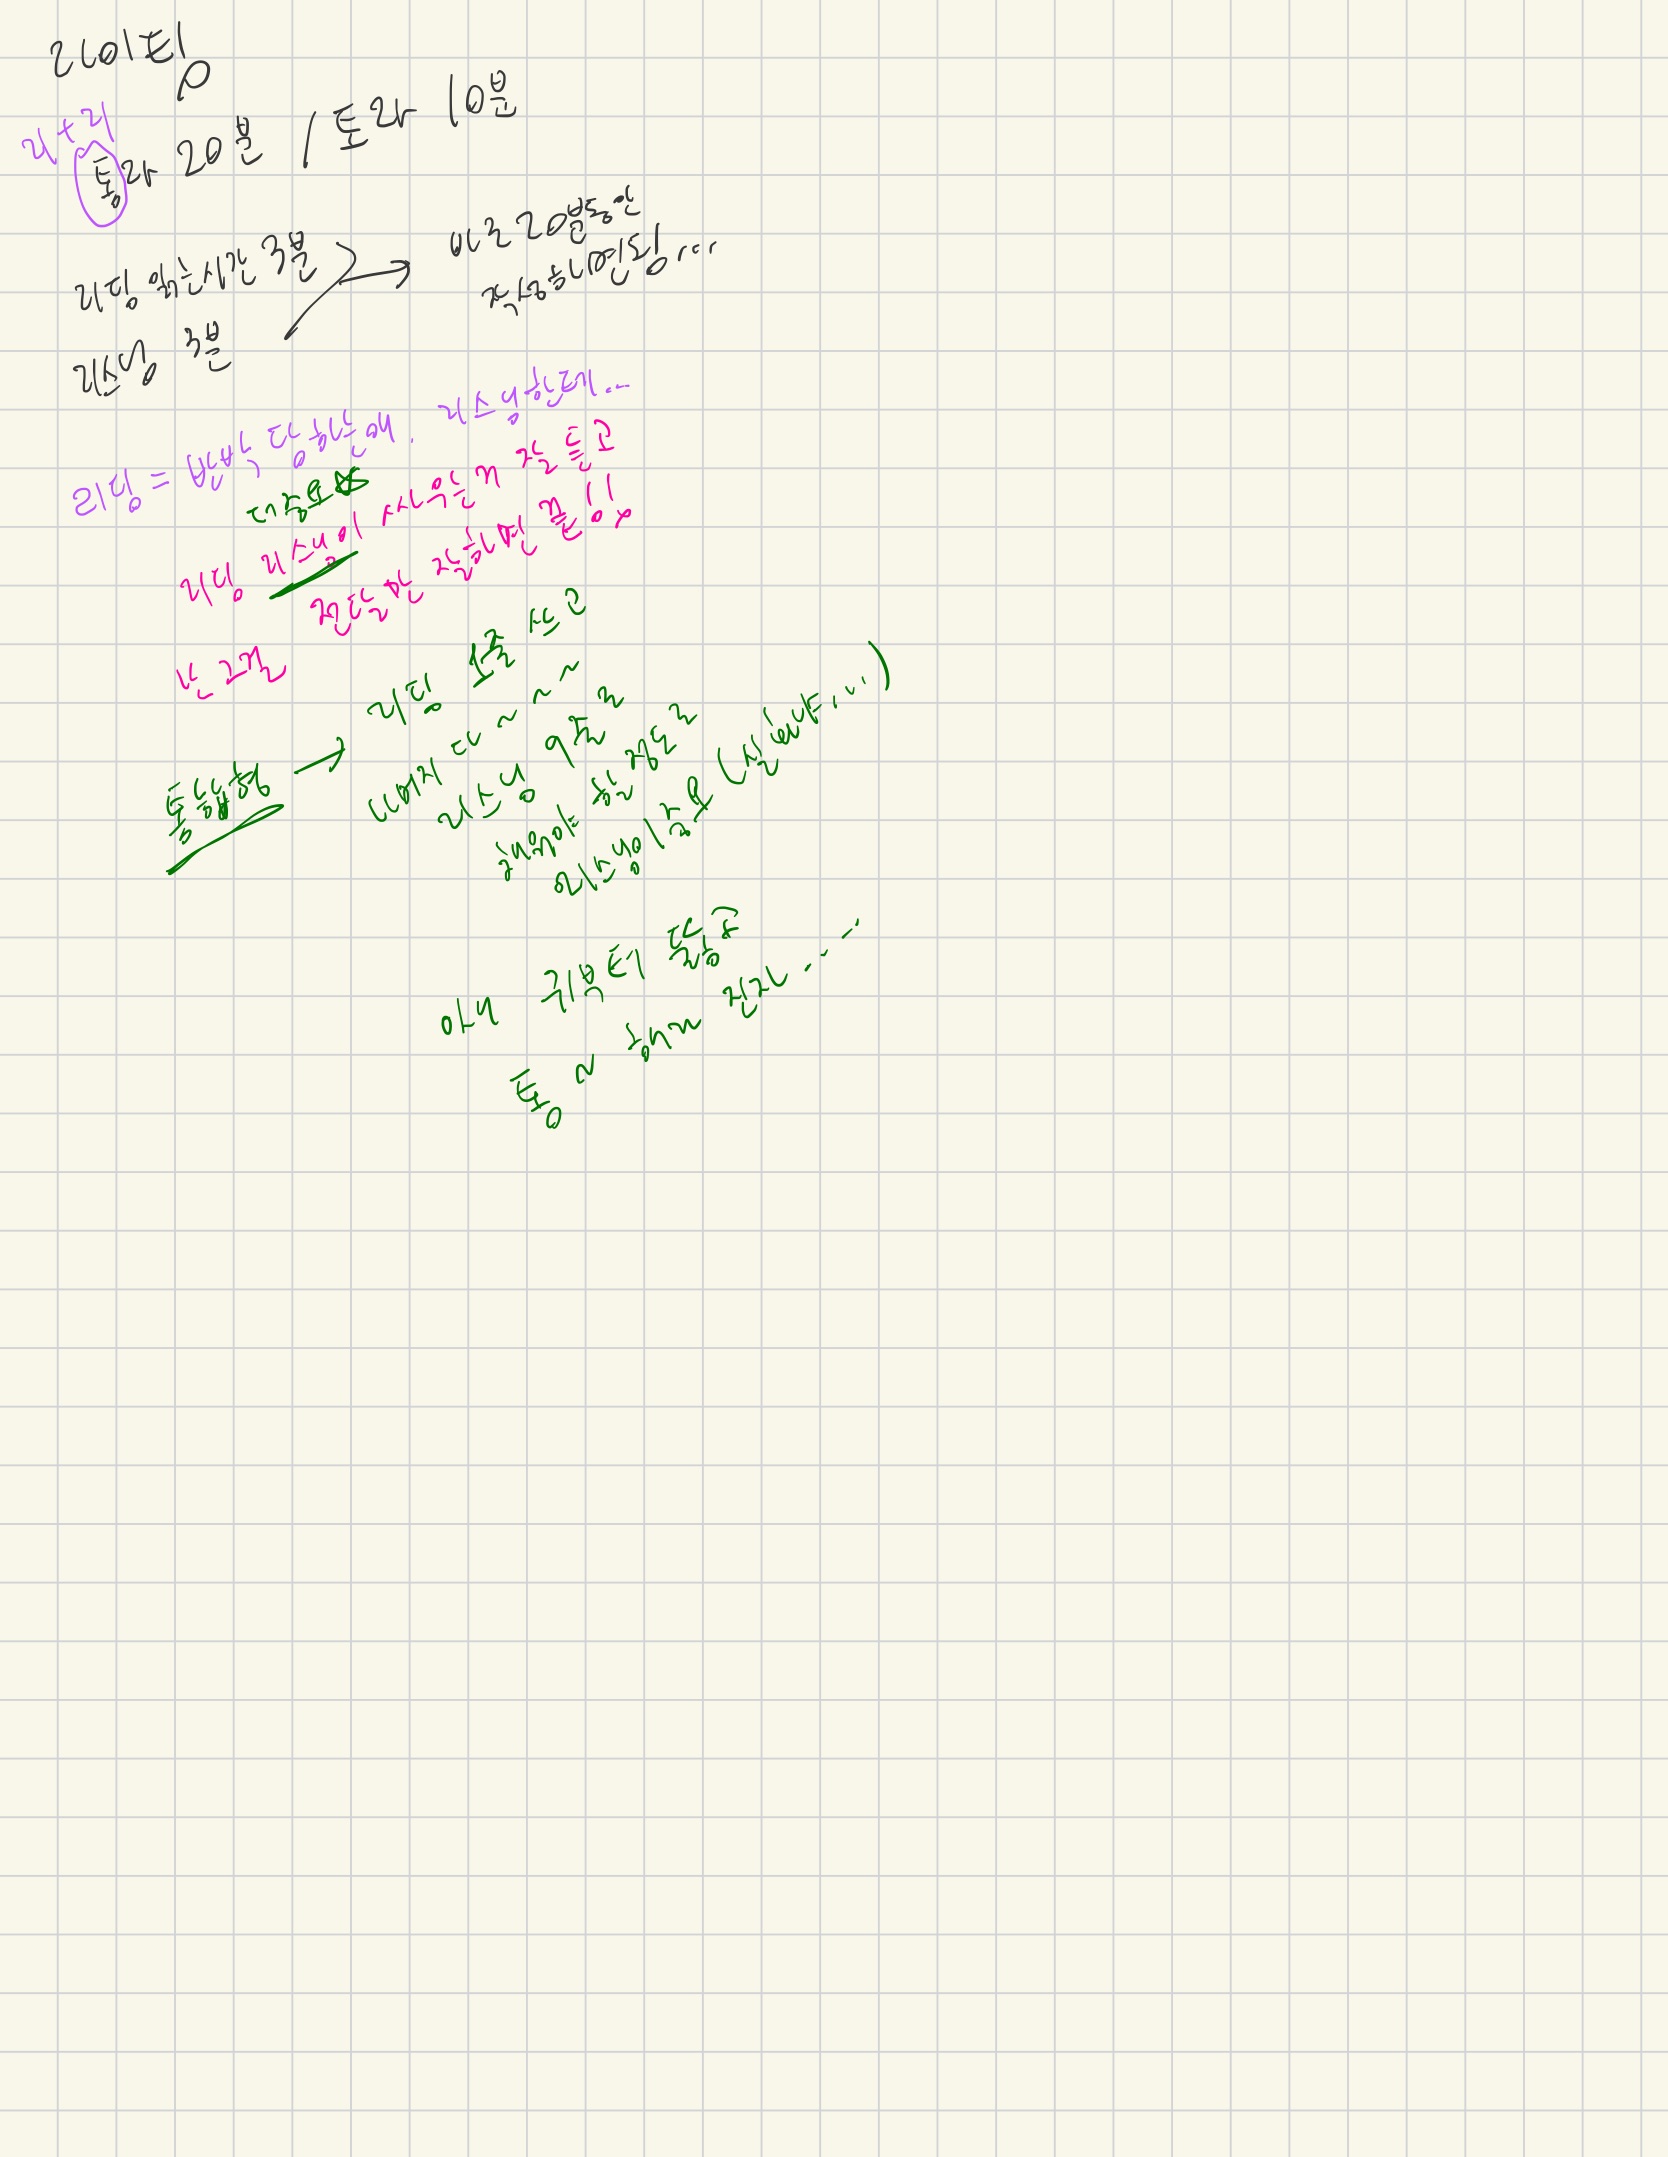 라이팅
리+리
통라 20분 / 토라 10분
리딩 읽는시간 3분
바로 20분동안
작성하면됨...
리스닝 3분
리딩 = 반박 당하는애. 리스닝한테...
대중요
리딩 리스닝이 싸우는거 잘 듣고
난 그걸 전달만 잘하면 끝!!
통합형 → 리딩 1줄 쓰고
나머지 다 ~ ~ ~ ~
리스닝 9줄로
채워야 할 정도로
리스닝이 중요
아니 귀부터 뚫어
통 ~ 해석 진짜....